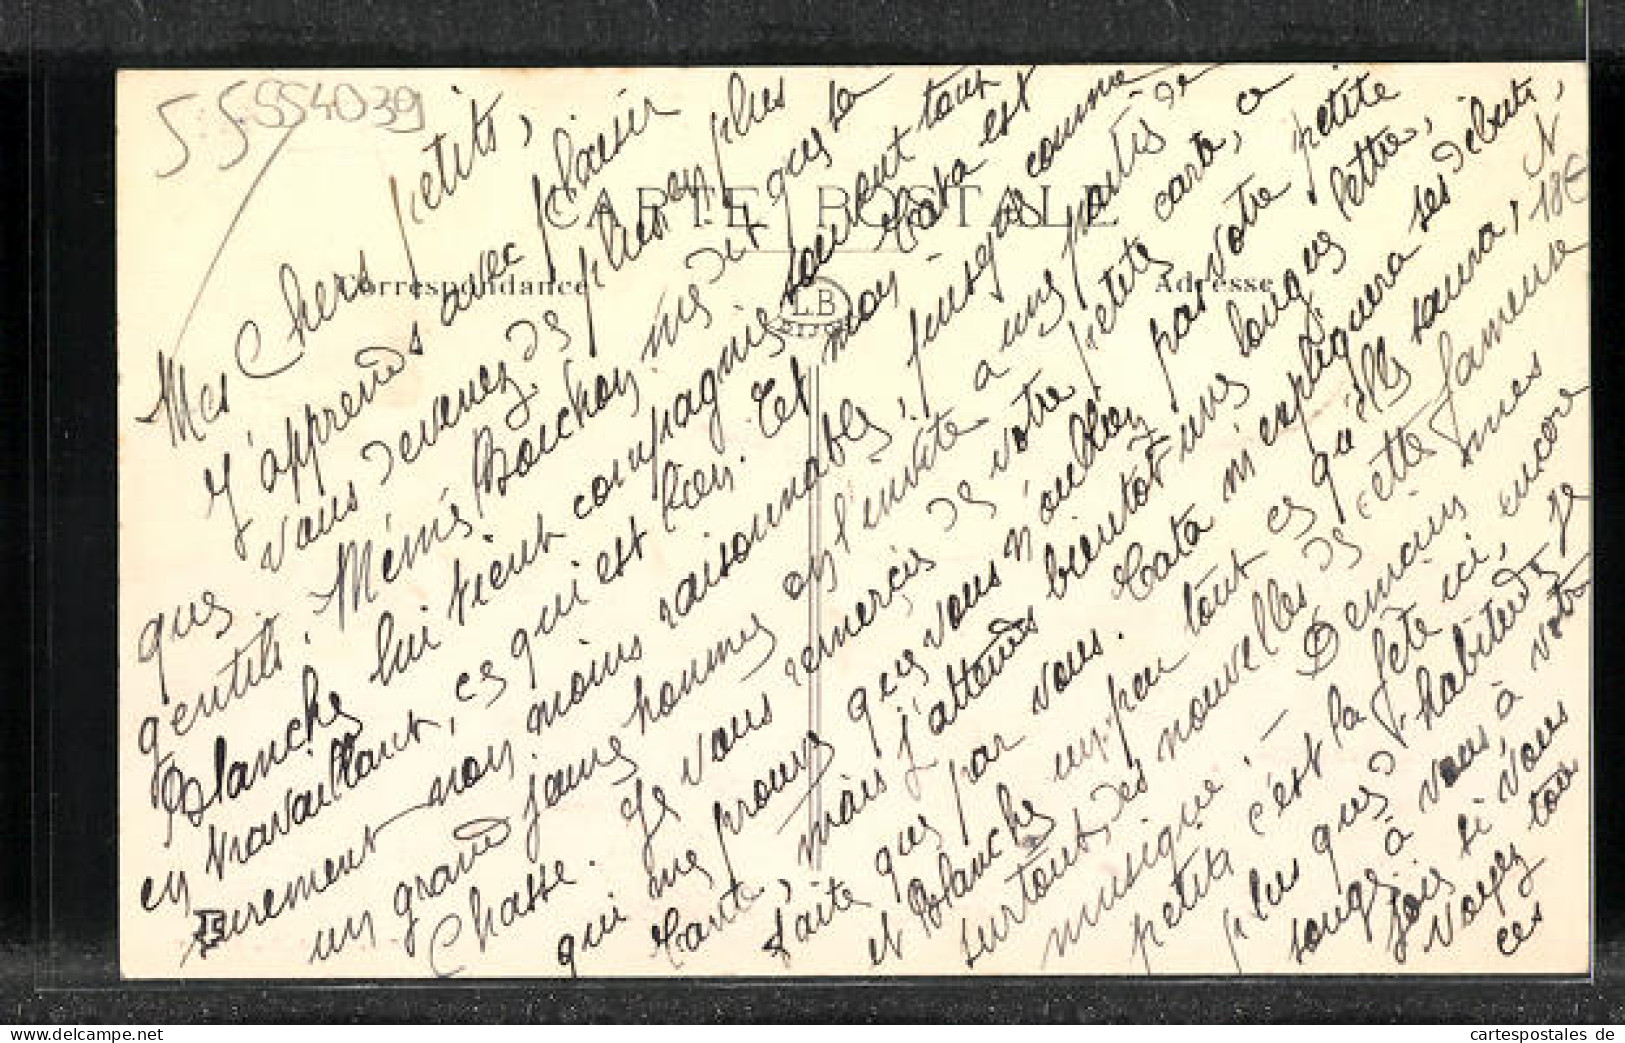 5.5554039
CARTE POSTALE
Correspondance
Adresse
L.B
Mes Chers petits,
J'apprends avec plaisir
que vous devenez de plus en plus
gentils. Mémé Bouchon me dit que sa
Blanche lui tient compagnie souvent tout
en travaillant, ce qui est bon. Et mon Tata est
surement non moins raisonnable, puisque comme
un grand jeune homme on l'invite a une partie de
Chasse. Je vous remercie de votre petite carte, ce
qui me prouve que vous n'oubliez pas votre petite
Tante, mais j'attends bientôt une longue lettre,
faite que par vous. Tata m'expliquera ses débuts,
et Blanche un peu tout ce qu'elle saura,
surtout des nouvelles de cette fameuse
musique! - Demain
petits c'est la fête ici, encore
plus que d'habitude je
songe à vous, à votre
joie si vous
voyez tou
ces